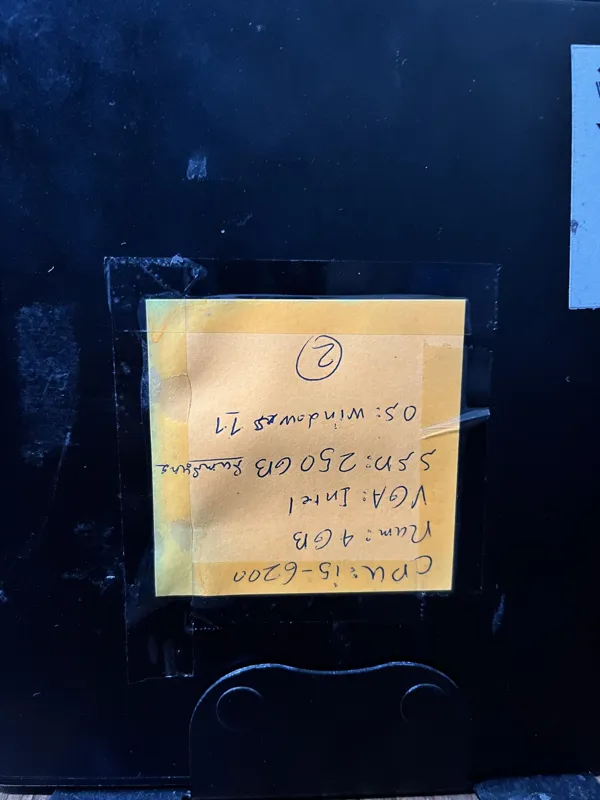 CPU: i5-6200
Ram: 4 GB
VGA: Intel
SSD: 250 GB Sumsung
OS: Windows 11
2